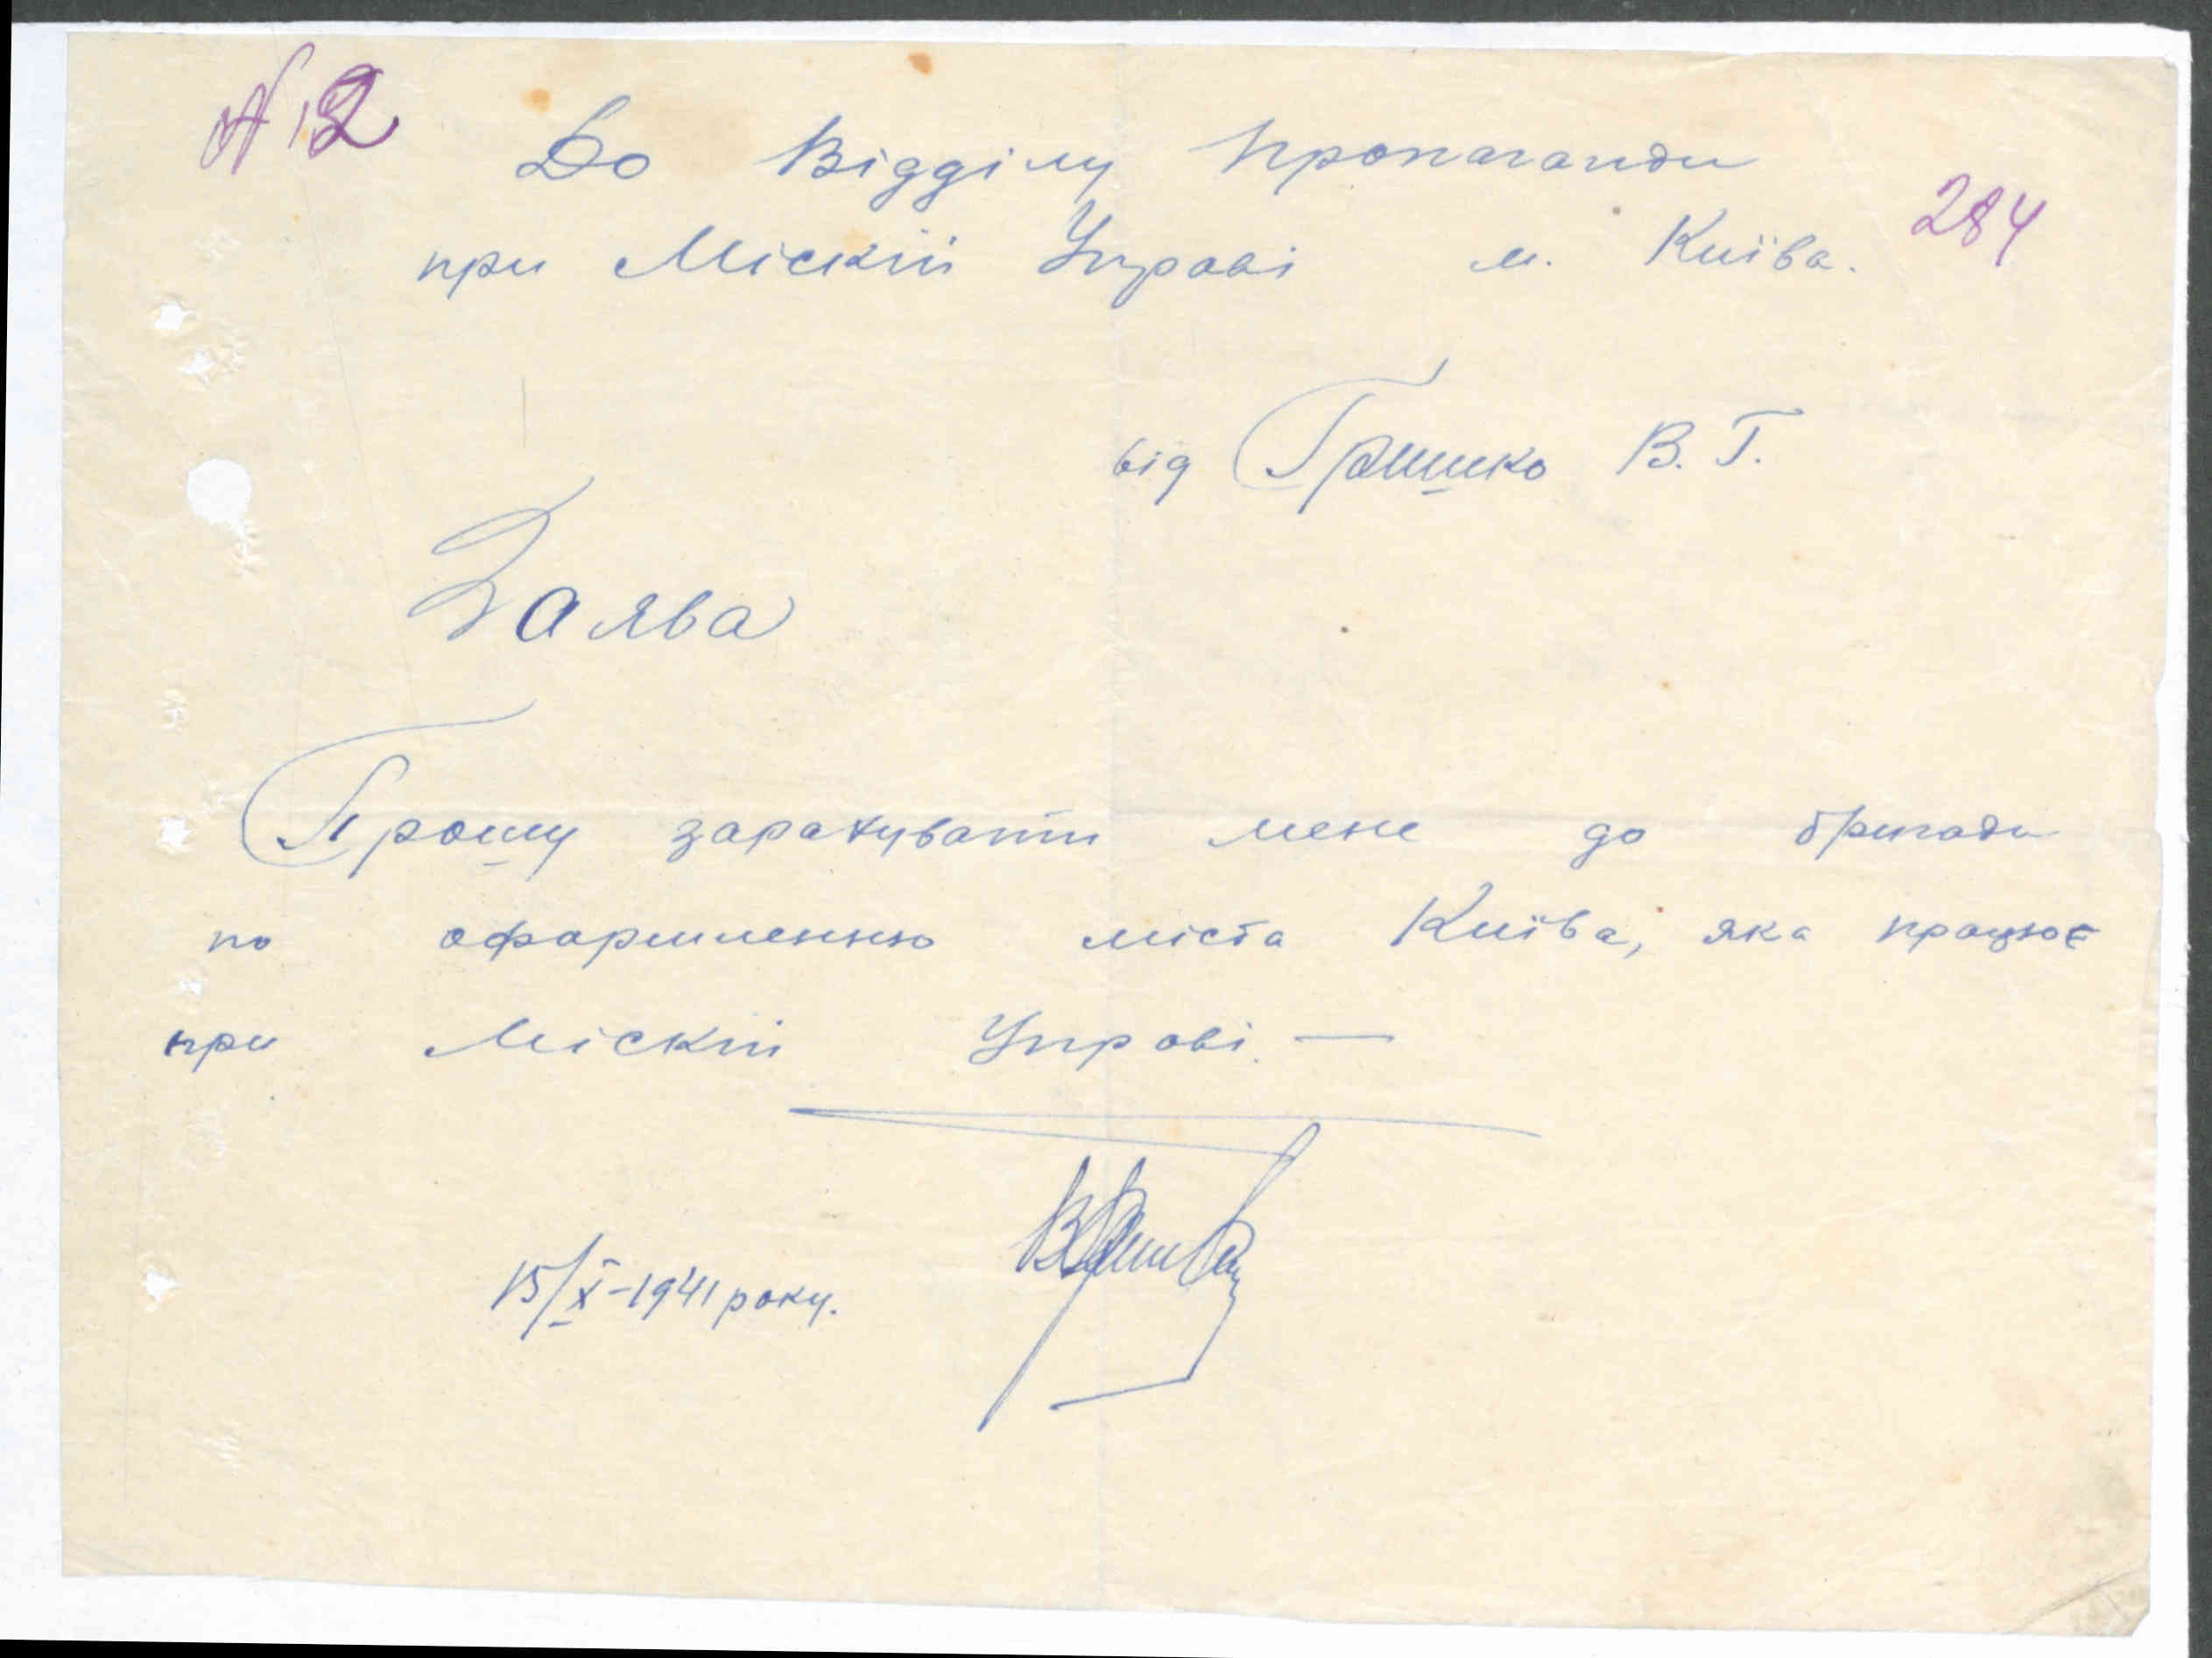 № 12
До Відділу Пропаганди
284
при Міскій Управі м. Київа.
від Гришко В. Г.
Заява
Прошу зарахувати мене до бригади
по оформленню міста Київа, яка працює
при Міскій Управі. —
15/X-1941 року.